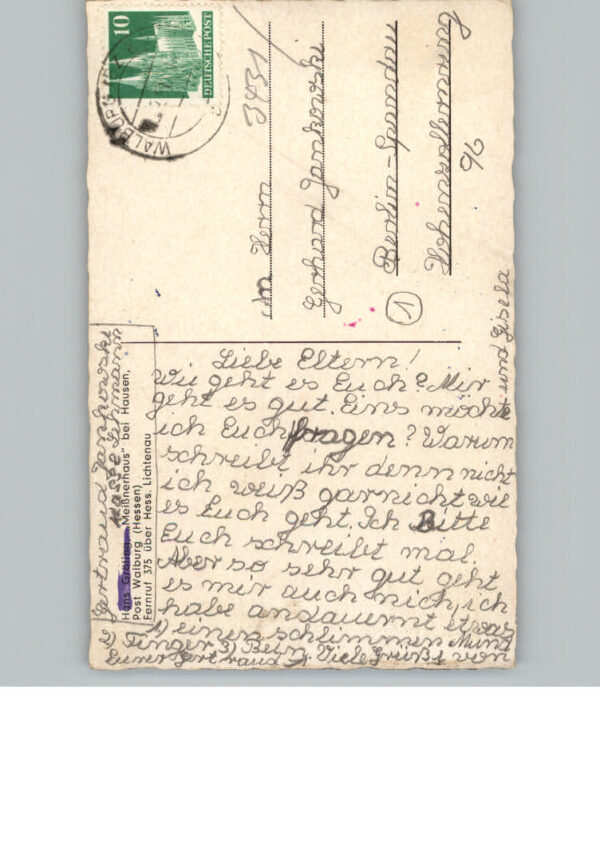 10
DEUTSCHE POST
WALBURG
3431
An Herrn
Gerhard Jankowski
Berlin-Spandau
Hohenzollernring
96
1
Gertraud Jankowski
Hans Meißnerhaus" bei Hausen,
Post Walburg (Hessen)
Fernruf 375 über Hess. Lichtenau
Liebe Eltern!
Wie geht es Euch? Mir
geht es gut. Eins möchte
ich Euch fragen? Warum
schreibt ihr denn nicht
ich weiß garnicht wie
es Euch geht. Ich Bitte
Euch schreibt mal.
Aber so sehr gut geht
es mir auch nich, ich
habe andauernt etwas
1) einen schlimmen Mund
2) Finger 3) Bein. Viele Grüße von
Eurer Gertraud
und Gisela